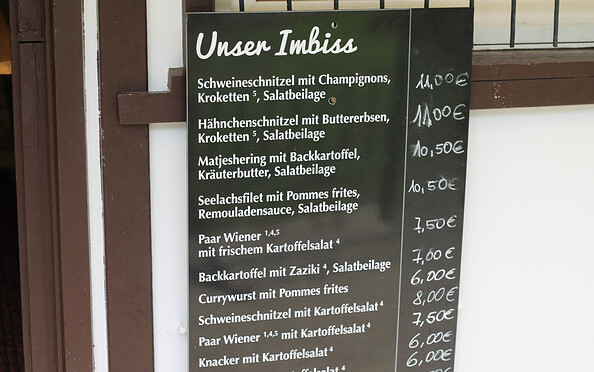 Unser Imbiss
Schweineschnitzel mit Champignons,
Kroketten ⁵, Salatbeilage 11,00 €
Hähnchenschnitzel mit Buttererbsen,
Kroketten ⁵, Salatbeilage 11,00 €
Matjeshering mit Backkartoffel,
Kräuterbutter, Salatbeilage 10,50 €
Seelachsfilet mit Pommes frites,
Remouladensauce, Salatbeilage 10,50 €
Paar Wiener ¹,⁴,⁵
mit frischem Kartoffelsalat ⁴ 7,50 €
Backkartoffel mit Zaziki ⁴, Salatbeilage 7,00 €
Currywurst mit Pommes frites 6,00 €
Schweineschnitzel mit Kartoffelsalat ⁴ 8,00 €
Paar Wiener ¹,⁴,⁵ mit Kartoffelsalat ⁴ 7,50 €
Knacker mit Kartoffelsalat ⁴ 6,00 €
mit Kartoffelsalat ⁴ 6,00 €